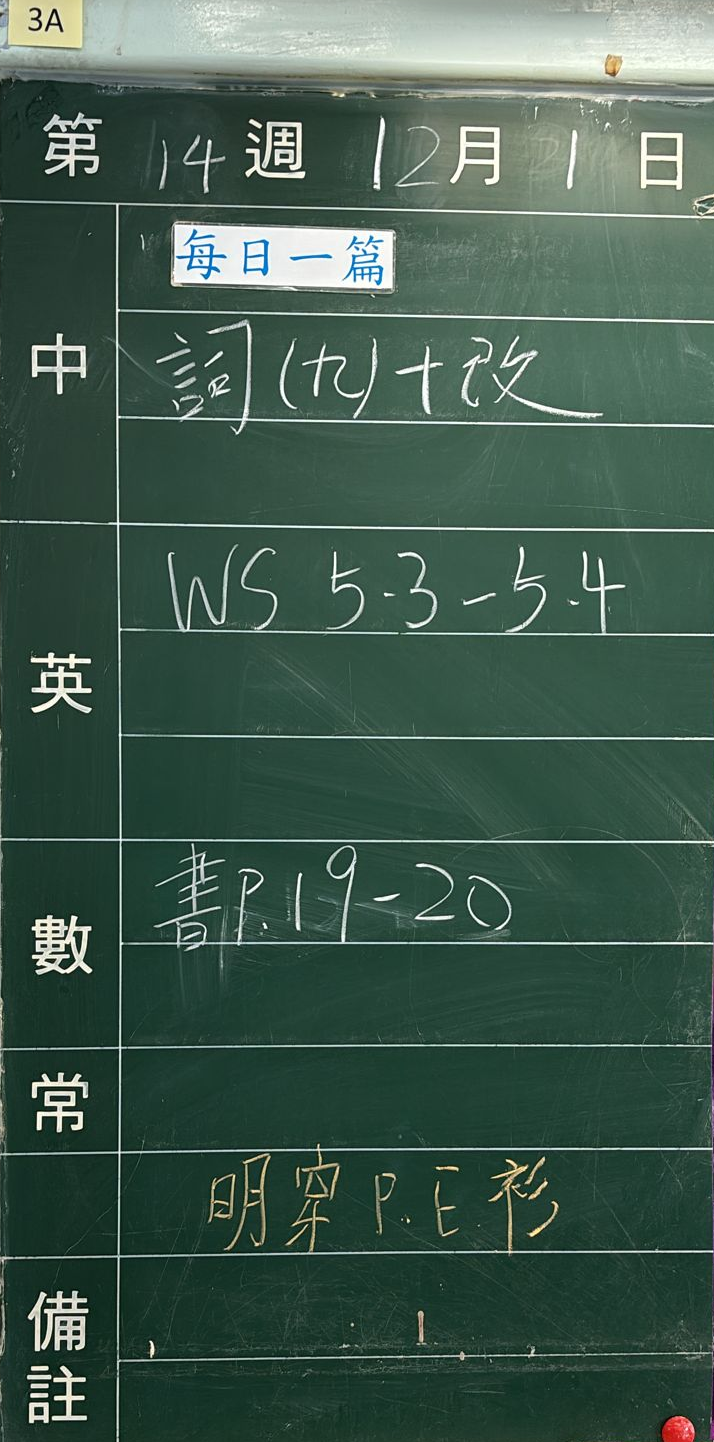 3A
第 14 週 12 月 1 日
每日一篇
中
詞(九)+改
WS 5.3-5.4
英
書P.19-20
數
常
明穿 P.E.衫
備註